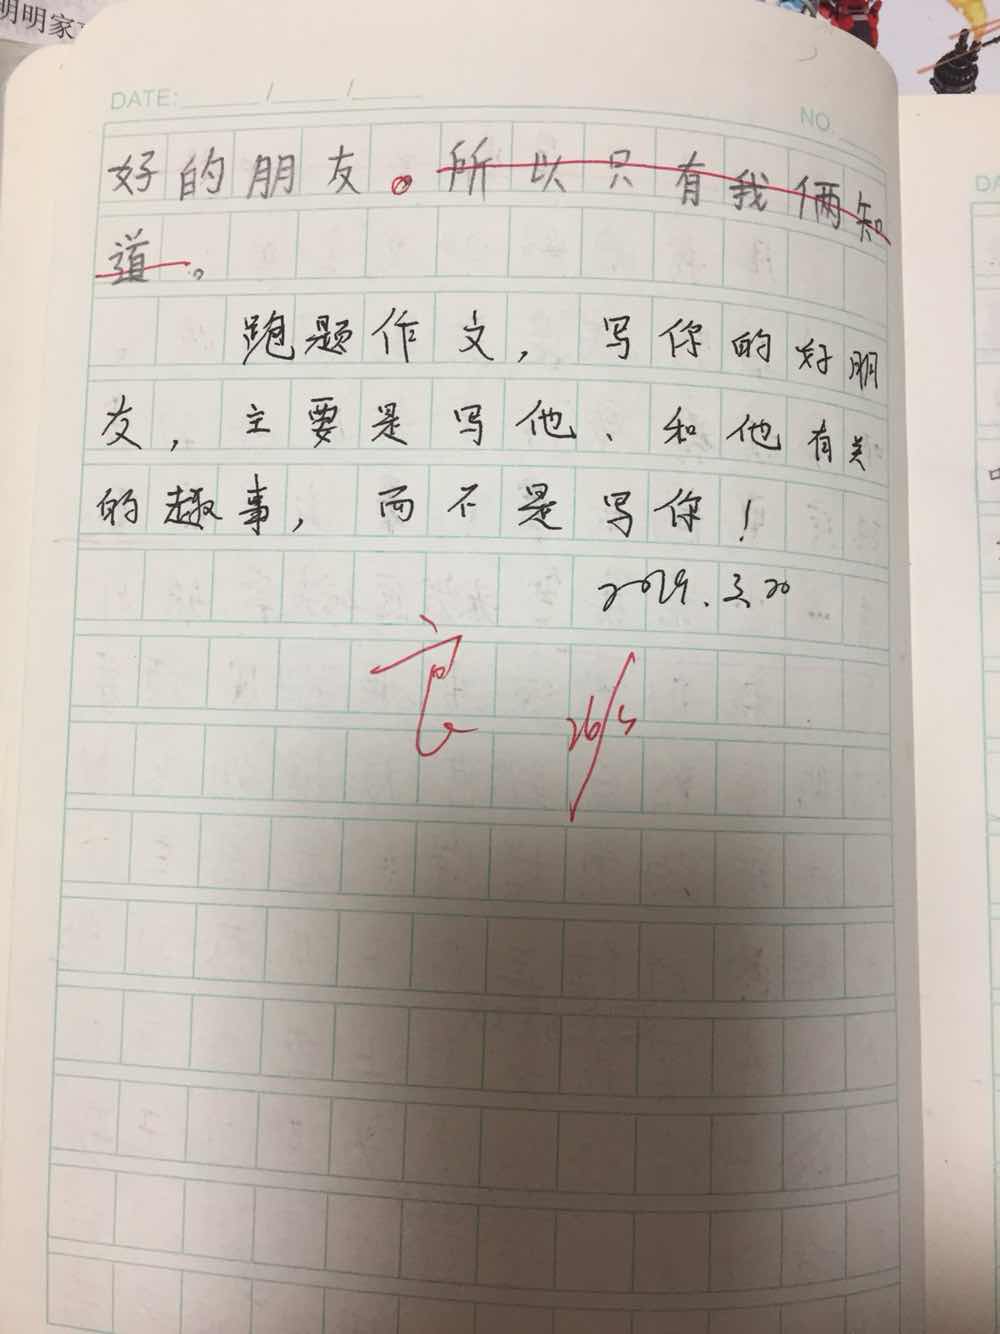 明明家
DATE: / /
NO.
好的朋友。所以只有我俩知
道。
跑题作文，写你的好朋
友，主要是写他、和他有关
的趣事，而不是写你！
2019.3.20
26/3